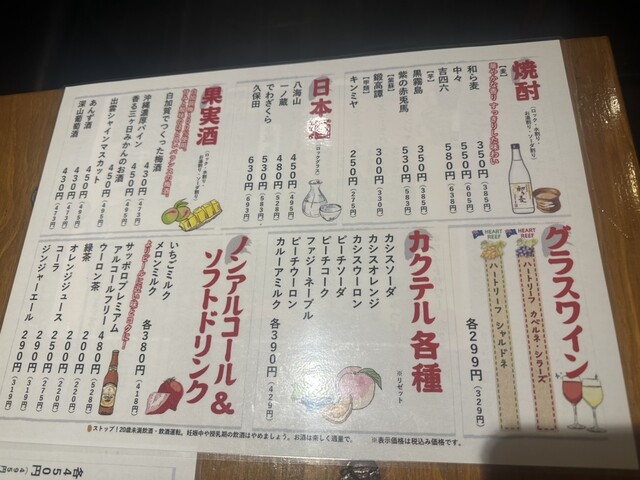 焼酎
(ロック・水割り
お湯割り・ソーダ割り)
【麦】
和ら麦 350円(385円)
中々 550円(605円)
吉四六 580円(638円)
【芋】
黒霧島 350円(385円)
紫の赤兎馬 530円(583円)
【紫蘇】
鍛高譚 300円(330円)
【甲類】
キンミヤ 250円(275円)
日本酒
(ロックグラス)
八海山 450円(495円)
一ノ蔵 480円(528円)
でわざくら 530円(583円)
久保田 630円(693円)
果実酒
(ロック・水割り
お湯割り・ソーダ割り)
白加賀でつくった梅酒
香る三ヶ日みかんのお酒 450円(495円)
沖縄濃厚パイン 430円(473円)
出雲シャインマスカット 450円(495円)
あんず酒 430円(473円)
深山葡萄酒 430円(473円)
グラスワイン
HEART REEF
HEART REEF
ハートリーフ カベルネ・シラーズ
ハートリーフ シャルドネ
各299円(329円)
カクテル各種
※リゼット
カシスソーダ
カシスオレンジ
カシスウーロン
ピーチソーダ
ピーチコーク
ファジーネーブル
ピーチウーロン
カルーアミルク
各390円(429円)
ノンアルコール&
ソフトドリンク
いちごミルク
メロンミルク
各380円(418円)
サッポロプレミアム
アルコールフリー 480円(528円)
ウーロン茶 200円(220円)
緑茶 200円(220円)
オレンジジュース 200円(220円)
コーラ 250円(275円)
ジンジャーエール 290円(319円)
ストップ!20歳未満飲酒・飲酒運転。妊娠中や授乳期の飲酒はやめましょう。お酒は楽しく適量で。
※表示価格は税込み価格です。
各450円(495円)